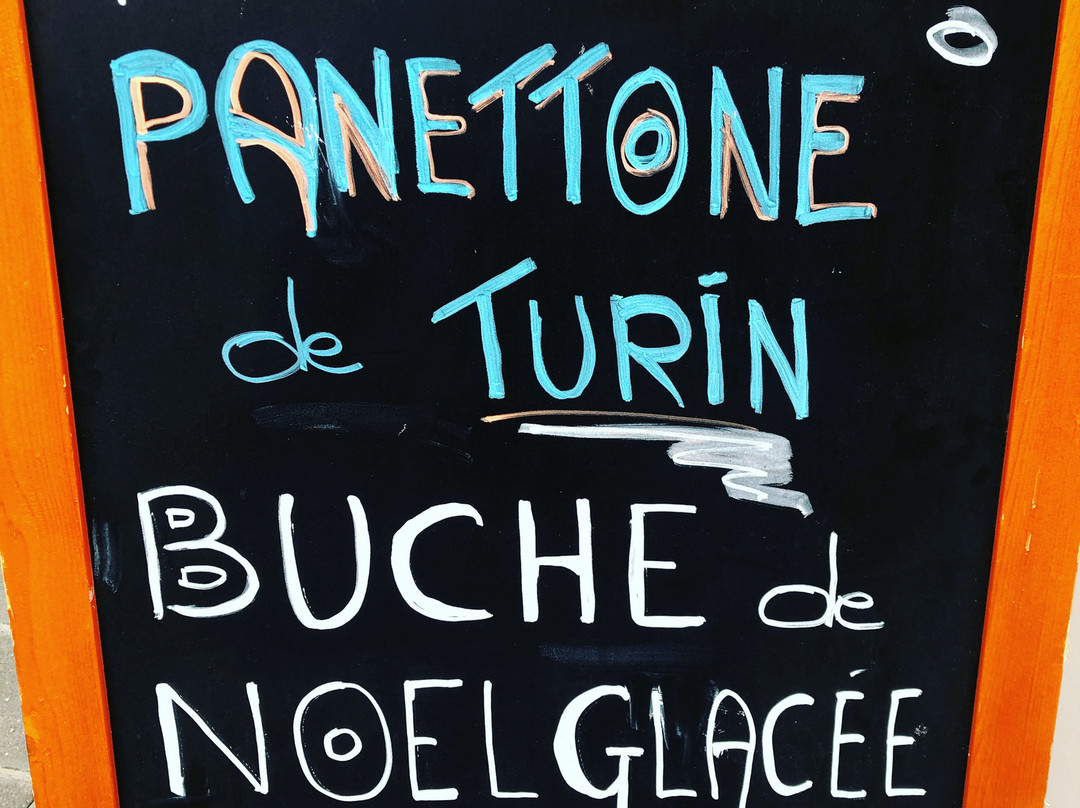 PANETTONE
de TURIN
BUCHE de
NOEL GLACÉE